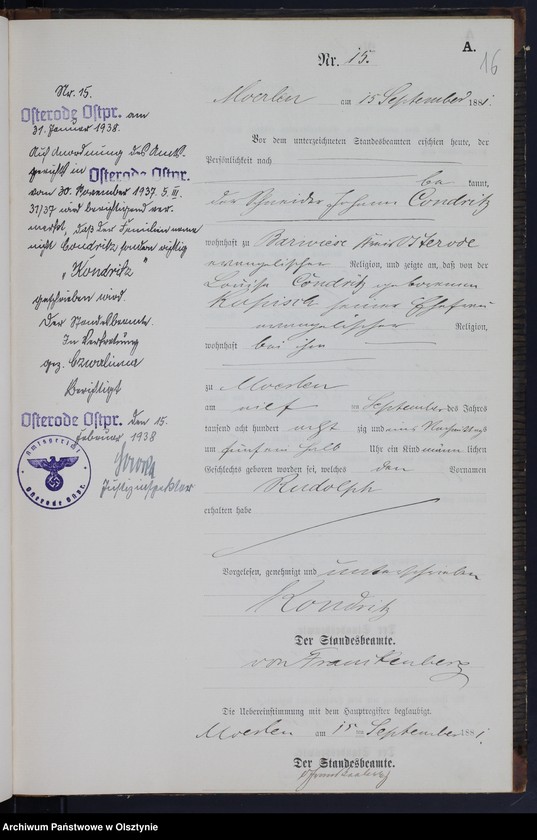 A.
16
Nr. 15.
Moerlen am 15 September 1881.
Vor dem unterzeichneten Standesbeamten erschien heute, der
Persönlichkeit nach
be kannt,
der Schneider Johann Condritz
wohnhaft zu Barwiese Kreis Osterode
evangelischer Religion, und zeigte an, daß von der
Louise Condritz geborenen
seiner Ehefrau
evangelischer Religion,
wohnhaft bei ihm
zu Moerlen
am elf ten September des Jahres
tausend acht hundert acht zig und eins Nachmittags
um fünfein halb Uhr ein Kind männ lichen
Geschlechts geboren worden sei, welches den Vornamen
Rudolph
erhalten habe
Vorgelesen, genehmigt und unterschrieben
Kondritz
Der Standesbeamte.
von Frankenberg
Die Uebereinstimmung mit dem Hauptregister beglaubigt.
Moerlen am 15 ten September 1881.
Der Standesbeamte.
v Frankenberg
Nr. 15.
Osterode Ostpr. am
31. Januar 1938.
Auf Anordnung des Amts-
gerichts in Osterode Ostpr.
vom 30. November 1937 5. III.
37/37 wird berichtigend ver-
merkt, daß der Familienname
nicht Condritz, sondern richtig
"Kondritz"
geschrieben wird.
Der Standesbeamte.
In Vertretung
gez. Czwalinna
Berichtigt
Osterode Ostpr. den 15.
Februar 1938
Justizinspektor
Amtsgericht
Osterode Ostpr.
Archiwum Państwowe w Olsztynie